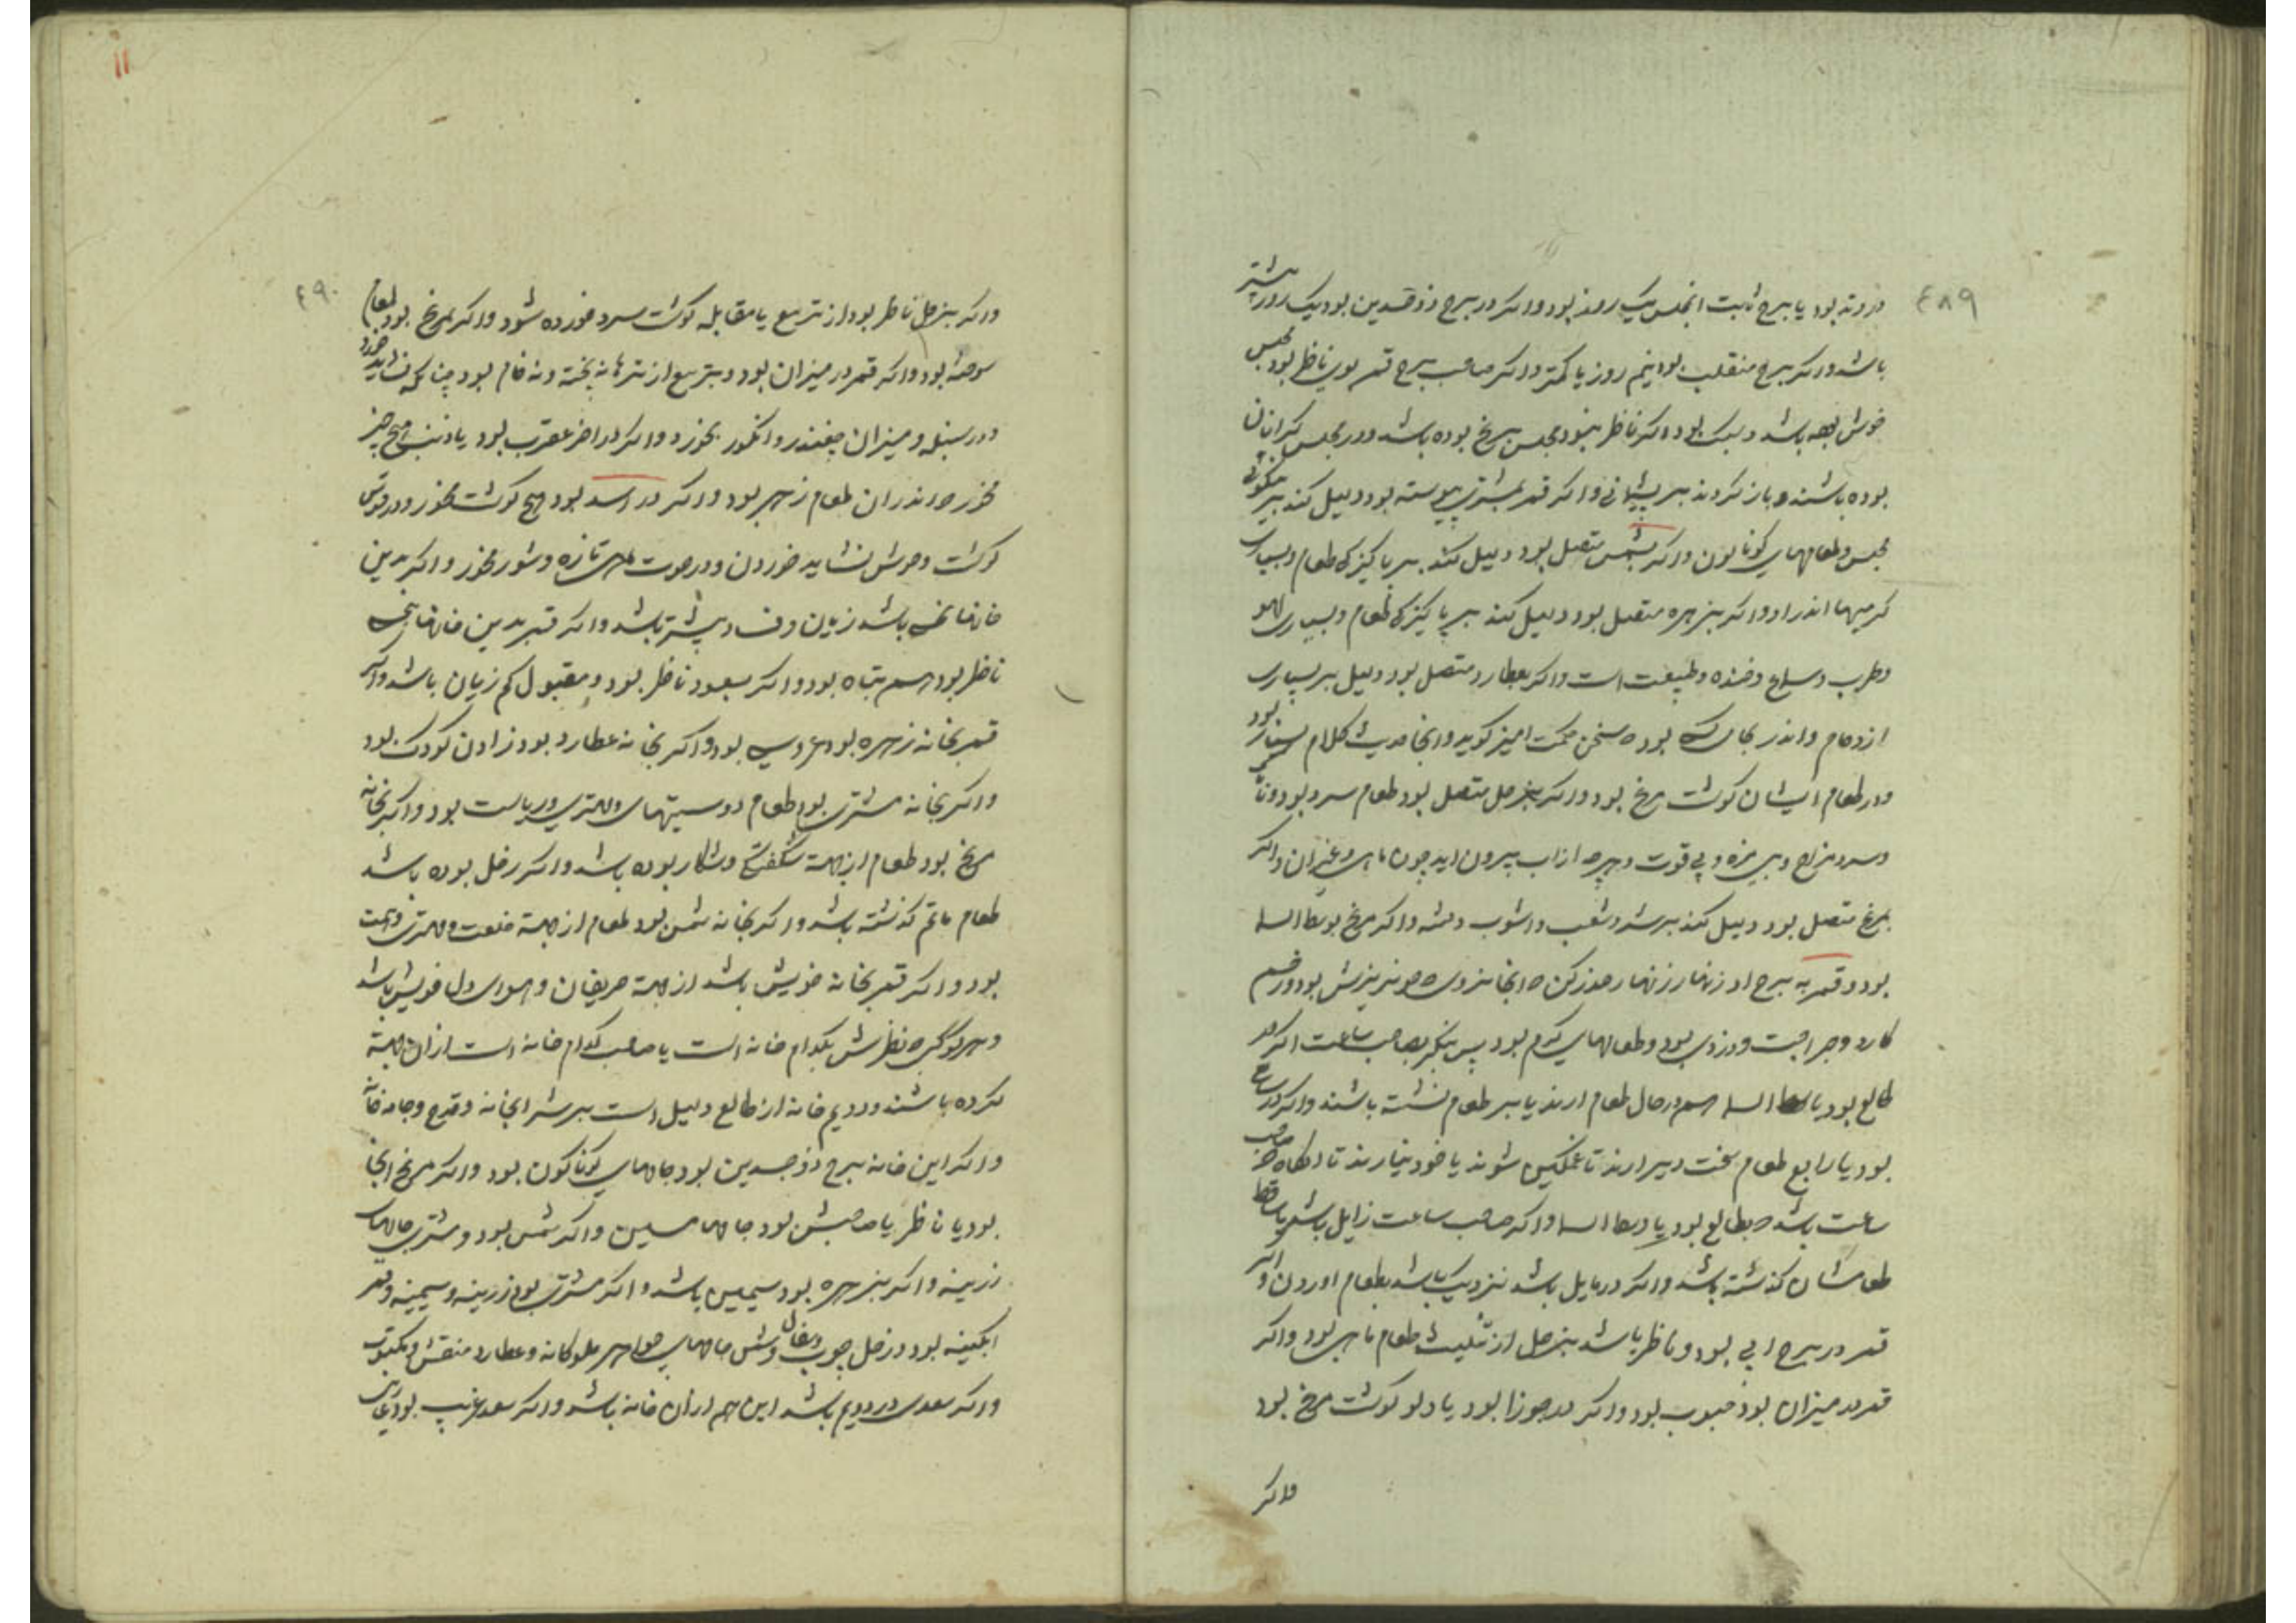 ٤٨٩
در وتد بود یا ببرج ثابت انمجلس یک روز بود واکر در برج ذوجسدین بود یک روز بیشتر
باشد واکر ببرج منقلب بود نیم روز یا کمتر واکر صاحب برج قمر بوی ناظر بود مجلس
خوش باشد و نیک بود اکر ناظر نبود مجلس برنج بوده باشد ودر مجلس کرانان
بوده باشند و باز کردند بر پشیمانی واکر قمر بمشتری پیوسته بود دلیل کند بر نیکوئی
مجلس وطعامهای کوناکون واکر بشمس متصل بود دلیل کند بر پاکیزکی طعام وبسیاری
کرمیها اندر او واکر بزهره متصل بود دلیل کند بر پاکیزکی طعام وبسیاری لهو
وطرب وسماع وخنده وطیبت است واکر بعطارد متصل بود دلیل بر بسیاری
ازدحام واندر بوده سخن حکمت امیز کوید وانجا حدیث کلام بسیار بود
ودر طعام ایشان کوشت مرغ بود واکر بزحل متصل بود طعام سرد بود
وسرد مزاج وبی مزه وبی قوت وهرچه از اب بیرون اید چون ماهی وغیر ان واکر
بمریخ متصل بود دلیل کند بر شر وشغب واشوب واکر مریخ بوسط السما
بود وقمر به برج او زنهار زنهار حذر کن انجا نروی خونریزش بود وزخم
کارد وجراحت ودزدی بود وطعامهای کرم بود پس بنکر بصاحب ساعت اکر در
طالع بود یا وسط السما هم در حال طعام ارند یا بر طعام نشسته باشند واکر در سابع
بود یا رابع طعام سخت دیر ارند تا غمکین شوند یا خود نیارند تا انکاه صاحب
ساعت باشد بطالع بود یا وسط السما واکر صاحب ساعت زایل باشد یا ساقط
طعامشان کذشته باشد واکر در مایل باشد نزدیک باشد بطعام اوردن واکر
قمر در برج ابی بود وناظر باشد بزحل از تثلیث طعام ماهی بود واکر
قمر در میزان بود حبوب بود واکر در جوزا بود یا دلو کوشت مرغ بود
واکر
١١
٤٩٠
واکر بزحل ناظر بود از تربیع یا مقابله کوشت سرد خورده شود واکر بمریخ بود طعام
سوخته بود واکر قمر در میزان بود وبتربیع از تره ها نه پخته ونه خام بود چنانکه نشاید خورد
ودر سنبله ومیزان چغندر وانکور بخورد واکر در اخر عقرب بود یا ذنب هیچ چیز
مخور اندران طعام زهر بود واکر در اسد بود هیچ کوشت مخور ودر قوس
کوشت وحوش نشاید خوردن ودر حوت ماهی تازه وشور مخور واکر بدین
خانها نحس باشد زیان وفساد بیشتر باشد واکر قمر بدین خانها بنحس
ناظر بود هم تباه بود واکر بسعود ناظر بود ومقبول کم زیان باشد واکر
قمر بخانه زهره بود عروسی بود واکر بخانه عطارد بود زادن کودک بود
واکر بخانه مشتری بود طعام دوستیهای ومهتری وریاست بود واکر بخانه
مریخ بود طعام از جهت وشکار بوده باشد واکر زحل بوده باشد
طعام ماتم کذشته باشد واکر بخانه شمس بود طعام از جهة خلعت ومهتری
بود واکر قمر بخانه خویش باشد از جهة حریفان وهوای دل خویش باشد
وهر کوکبی نظرش بکدام خانه است یا صاحب کدام خانه است از ان جهة
کرده باشند ودویم خانه از طالع دلیل است بر شرابخانه وقدح وجامه خانه
واکر این خانه برج ذوجسدین بود جامهای کوناکون بود واکر مریخ انجا
بود یا ناظر یا صاحبش بود جامها مسین واکر شمس بود ومشتری جامهای
زرینه واکر بزهره بود سیمین باشد واکر مشتری بود زرینه وسیمینه وقمر
ابکینه بود وزحل چوب وسفال وشمس جامهای جواهر ملوکانه وعطارد منقش ومکتوب
واکر سعدی در دویم باشد این هم از ان خانه باشد واکر سعد غریب بود عاریتی